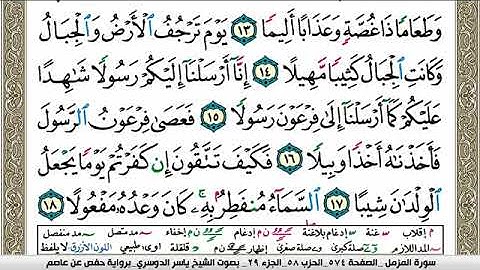 وَطَعَامًا ذَا غُصَّةٍ وَعَذَابًا أَلِيمًا ١٣ يَوْمَ تَرْجُفُ ٱلْأَرْضُ وَٱلْجِبَالُ
وَكَانَتِ ٱلْجِبَالُ كَثِيبًا مَّهِيلًا ١٤ إِنَّآ أَرْسَلْنَآ إِلَيْكُمْ رَسُولًا شَٰهِدًا
عَلَيْكُمْ كَمَآ أَرْسَلْنَآ إِلَىٰ فِرْعَوْنَ رَسُولًا ١٥ فَعَصَىٰ فِرْعَوْنُ ٱلرَّسُولَ
فَأَخَذْنَٰهُ أَخْذًا وَبِيلًا ١٦ فَكَيْفَ تَتَّقُونَ إِن كَفَرْتُمْ يَوْمًا يَجْعَلُ
ٱلْوِلْدَٰنَ شِيبًا ١٧ ٱلسَّمَآءُ مُنفَطِرٌۢ بِهِۦ ۚ كَانَ وَعْدُهُۥ مَفْعُولًا ١٨
م إقلاب س غنة س إدغام بلاغنة ن م إدغام ن م إخفاء مد متصل مد منفصل
مد اللازم صلة كبرى وصلة صغرى إظهار ن م قلقلة اوى طبيعي النون الأزرق لا يلفظ
سورة المزمل .الصفحة ٥٧٤ .الحزب ٥٨ .الجزء ٢٩ .بصوت الشيخ ياسر الدوسري .برواية حفص عن عاصم